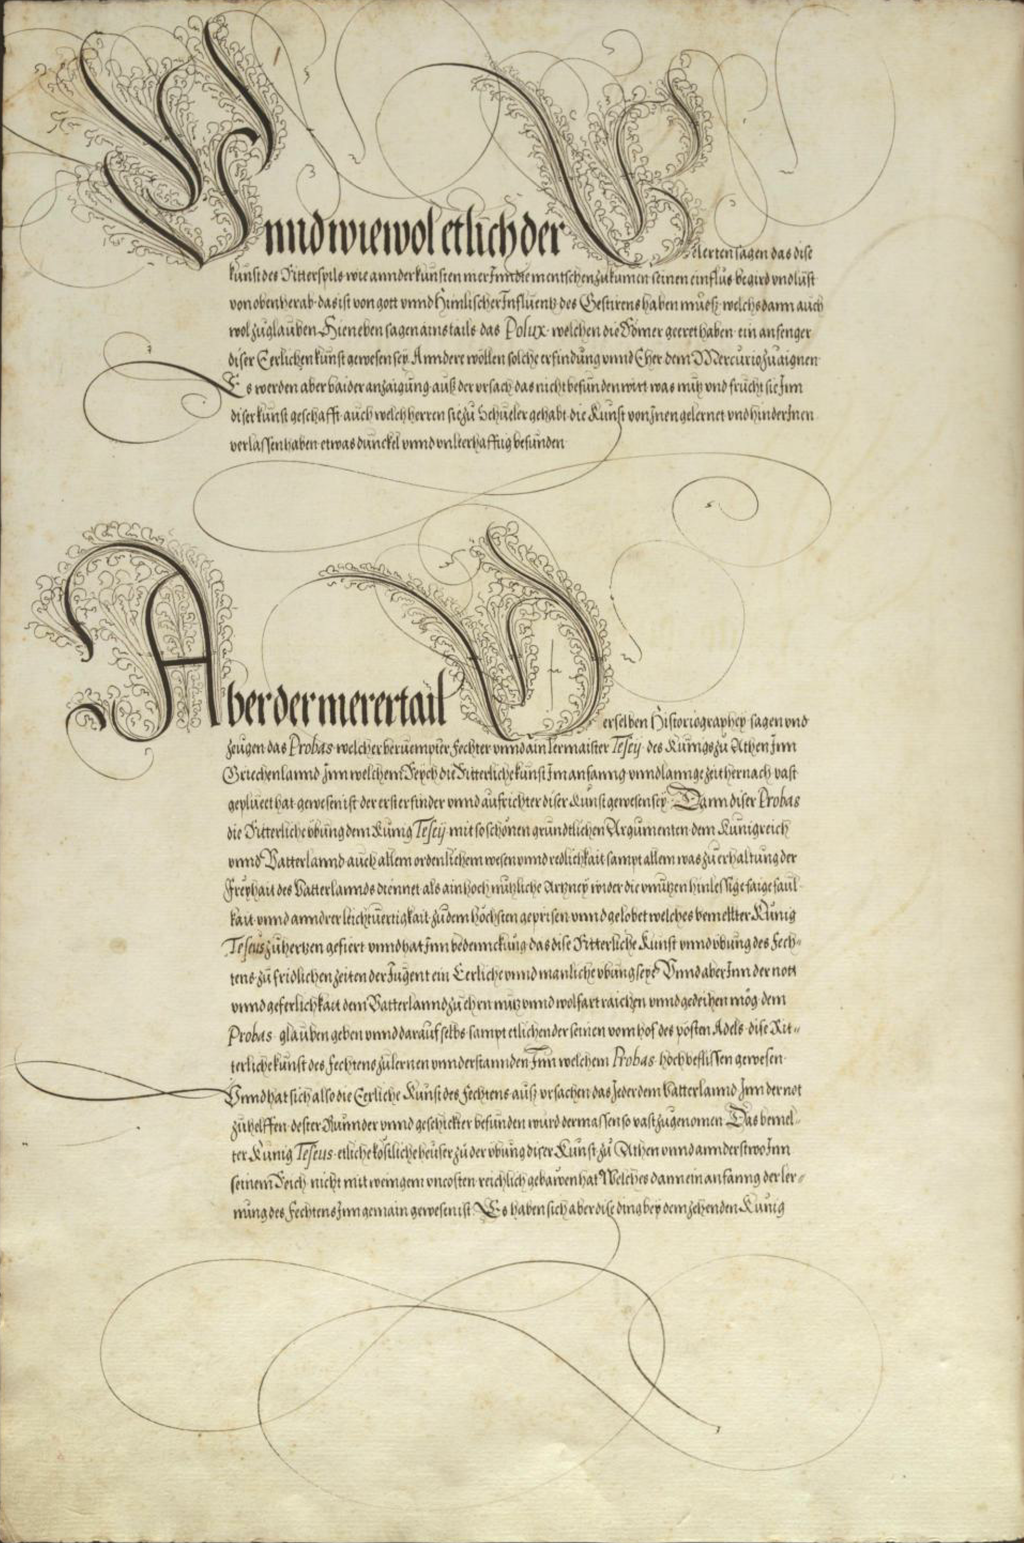 Vnnd wiewol etlich der Gelerten sagen das dise
kunst des Ritterspils wie annder kunsten mer Inn die mentschen zukumen seinen einflus begird vnd lust
von oben herab das ist von gott vnnd Himlischer Influentz des Gestirens haben mueß welchs dann auch
wol zuglauben Hieneben sagen ains tails das Polux welchen die Römer geeret haben ein anfenger
diser Eerlichen kunst gewesen sey Anndere wöllen solche erfindung vnnd Eher dem Mercurio zuaignen
Es werden aber baider anzaigung auß der vrsach das nicht befunden wirt was nutz vnd frucht sie Inn
diser kunst geschafft auch welch herren sie zu Schueler gehabt die Kunst von Inen gelernet vnd hinder Inen
verlassen haben etwas dunckel vnnd befunden
Aber der merertail Derselben Historiographey sagen vnd
zeugen das Probas welcher beruempter Fechter vnnd ain lermaister Tesey des Kunigs zu Athen Inn
Griechenlannd Inn welchem Reych die Ritterliche kunst Im anfanng vnnd lannge zeit hernach vast
geplueet hat gewesen ist der erst erfinder vnnd aufrichter diser Kunst gewesen sey Dann diser Probas
die Ritterliche vbung dem Kunig Tesey mit so schönen grundtlichen Argumenten dem Kunigreich
vnnd Vatterlannd auch allem ordenlichem wesen vnnd redlichkait sampt allem was zu erhaltung der
Freyhait des Vatterlannds diennet als ain hoch nutzliche Artzney wider die vnnutzen hinlessige faige faul-
kait vnnd annderer leichtuertigkait zu dem Höchsten geprisen vnnd gelobet welches bemelter Kunig
Teseus zu hertzen gefiert vnnd hat Inn bedennckung das dise Ritterliche Kunst vnnd vbung des Fech-
tens zu fridlichen zeiten der Jugent ein Eerliche vnnd manliche vbung seye Vnnd aber Inn der nott
vnnd geferlichkait dem Vatterlannd zu ehrn nutz vnnd wolfart raichen vnnd gedeihen mög dem
Probas glauben geben vnnd darauf selbs sampt etlichen der seinen vom hof des Adels dise Rit-
terliche kunst des Fechtens zulernen vnnderstannden Inn welchem Probas hoch beflissen gewesen
Vnnd hat sich also die Eerliche Kunst des Fechtens auß vrsachen das Jeder dem Vatterlannd Inn der not
zu helffen dester vnnd geschickter befunden wurd dermassen so vast zugenomen Das bemel-
ter Kunig Teseus etliche köstliche heuser zu der vbung diser Kunst zu Athen vnnd annderstwo Inn
seinem Reich nicht mit weingem vncosten reichlich gebawen hat Welches dann ein anfanng der ler-
nung des Fechtens Inn gemain gewesen ist Es haben sich aber dise ding bey dem zehenden Kunig